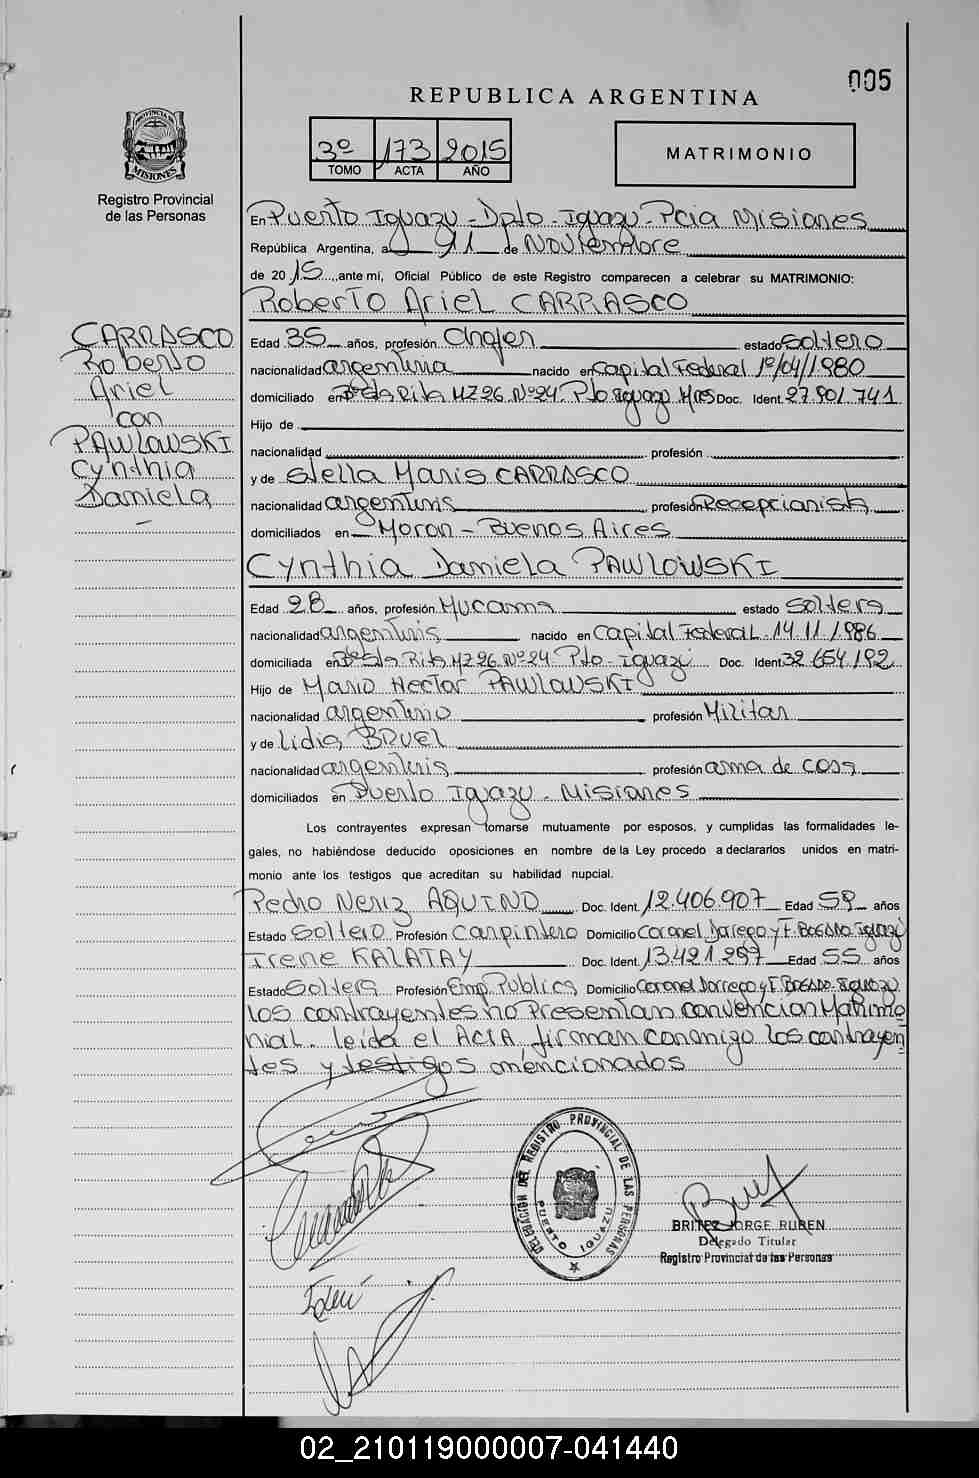 005
REPUBLICA ARGENTINA
3º 173 2015
TOMO ACTA AÑO
MATRIMONIO
PROVINCIA DE MISIONES
Registro Provincial
de las Personas
En Puerto Iguazu - Dpto - Iguazu - Pcia Misiones
República Argentina, a de Noviembre
de 20 15 ante mí, Oficial Público de este Registro comparecen a celebrar su MATRIMONIO:
Roberto Ariel CARRASCO
CARRASCO
Roberto
Ariel
con
PAWLOWSKI
Cynthia
Daniela
Edad 35 años, profesión Chofer estado Soltero
nacionalidad argentina nacido en Capital Federal 1º/04/1980
domiciliado en Bº Sta Rita MZ 26 Nº24 Pto Iguazu Mnes Doc. Ident. 27.901.741
Hijo de
nacionalidad profesión
y de Stella Maris CARRASCO
nacionalidad argentina profesión Recepcionista
domiciliados en Moron - Buenos Aires
Cynthia Daniela PAWLOWSKI
Edad 28 años, profesión Mucama estado Soltera
nacionalidad argentina nacido en Capital Federal - 14.11.1986
domiciliada en Bº Sta Rita MZ 26 Nº24 Pto - Iguazú Doc. Ident. 32.654.192
Hijo de Mario Hector PAWLOWSKI
nacionalidad argentino profesión Militar
y de Lidia BRUEL
nacionalidad argentina profesión ama de casa
domiciliados en Puerto Iguazu - Misiones
Los contrayentes expresan tomarse mutuamente por esposos, y cumplidas las formalidades le-
gales, no habiéndose deducido oposiciones en nombre de la Ley procedo a declararlos unidos en matri-
monio ante los testigos que acreditan su habilidad nupcial.
Pedro Neriz AQUINO Doc. Ident. 12.406.907 Edad 59 años
Estado Soltero Profesión Carpintero Domicilio Coronel Dorrego y F. Bosano Iguazú
Irene KALATAY Doc. Ident. 13.421.297 Edad 55 años
Estado Soltera Profesión Emp. Publica Domicilio Coronel Dorrego y F. Bosano - Iguazu
Los contrayentes no Presentan convencion Matrimo
nial. leida el Acta, firman conmigo los contrayen
tes y testigos mencionados
DELEGACION DEL REGISTRO PROVINCIAL DE LAS PERSONAS
PUERTO IGUAZU
BRITEZ JORGE RUBEN
Delegado Titular
Registro Provincial de las Personas
02_210119000007-041440